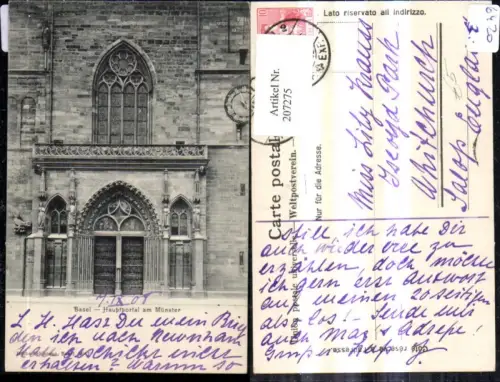 Basel — Hauptportal am Münster
7.IX 08
L. H. Hast Du mein Brief
den ich nach Newnham
Dir geschickt nicht
erhalten? Warum so
Artikel Nr.
207275
Lato riservato all indirizzo.
Carte postale
Weltpostverein.
Nur für die Adresse.
Miss Lily
Park
Whitchurch
Salop England
still, ich habe Dir
auch wieder viel zu
erzählen, doch möchte
ich gern erst Antwort
auf meinen 20 seitigen
als los! — Sende mir
auch Mag's Adresse!
Grüße
Côté réservé à l'adresse.